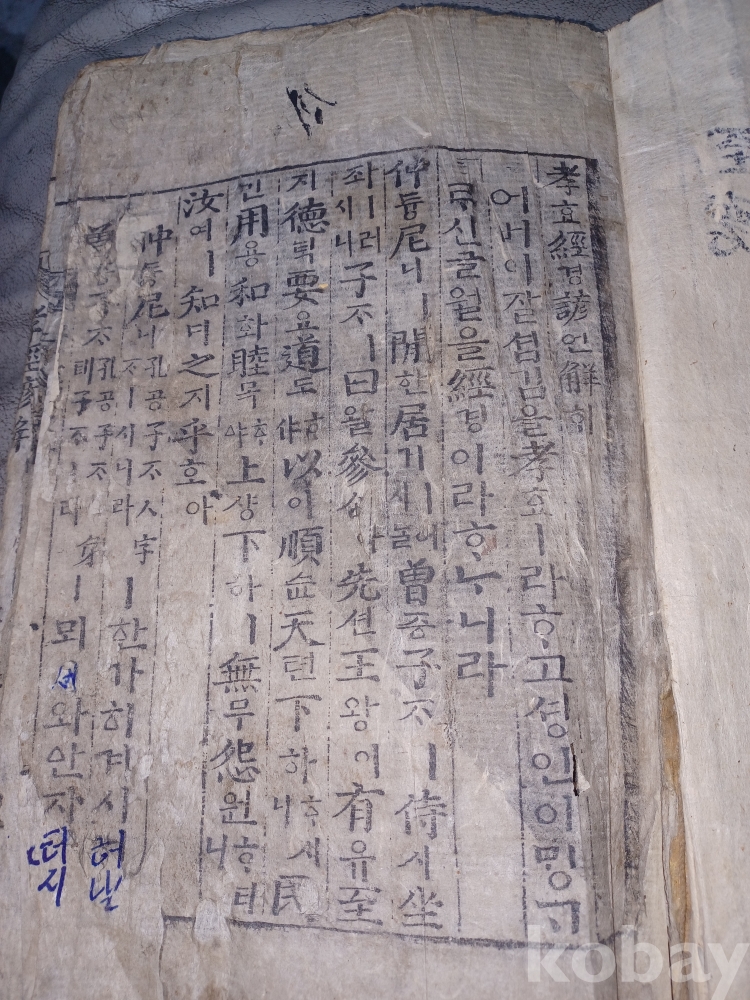 孝효經경諺언解ᄒᆡ
어버이잘셤김을孝효ㅣ라ᄒᆞ고셩인이ᄆᆡᆼᄀ
ᄅᆞ신글월을經경이라ᄒᆞᄂᆞ니라
仲듕尼니ㅣ閒한居거ㅣ어시ᄂᆞᆯ曾증子ᄌᆞㅣ侍시坐
좌ㅣ러시니子ᄌᆞㅣ曰왈參ᄉᆞᆷ아先션王왕이有유至
지德덕要요道도ᄒᆞ야以이順슌天텬下하ᄒᆞ시니民
민用용和화睦목ᄒᆞ야上샹下하ㅣ無무怨원ᄒᆞ니
汝여ㅣ知디之지乎호아
仲듕尼니孔공子ᄌᆞㅅ字ᄌᆞㅣ시니라ㅣ한가히겨시
孔공子ᄌᆞ 뫼셔와안자
허날
터시
kobay